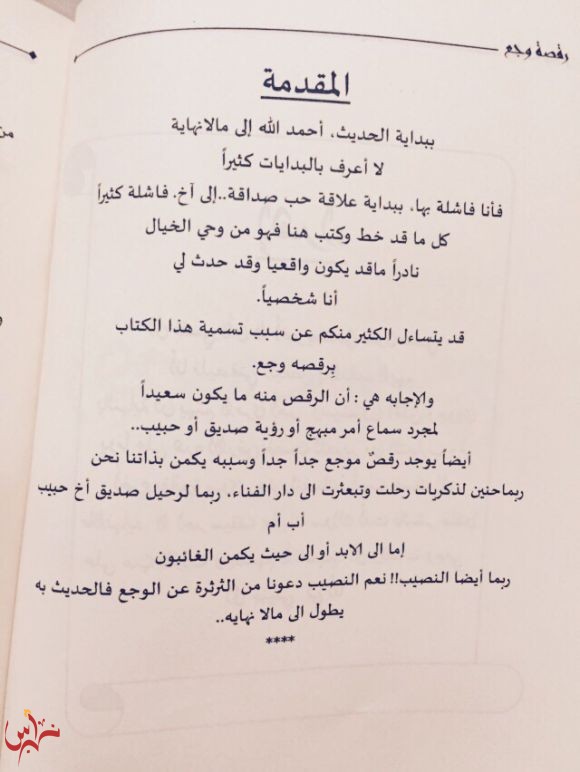 رقصة وجع
المقدمة
ببداية الحديث، أحمد الله إلى مالانهاية
لا أعرف بالبدايات كثيراً
فأنا فاشلة بها، ببداية علاقة حب صداقة..إلى آخ. فاشلة كثيراً
كل ما قد خط وكتب هنا فهو من وحي الخيال
نادراً ماقد يكون واقعيا وقد حدث لي
أنا شخصياً.
قد يتساءل الكثير منكم عن سبب تسمية هذا الكتاب
بِرقصه وجع.
والإجابه هي : أن الرقص منه ما يكون سعيداً
لمجرد سماع أمر مبهج أو رؤية صديق أو حبيب..
أيضاً يوجد رقصٌ موجع جداً جداً وسببه يكمن بذاتنا نحن
ربماحنين لذكريات رحلت وتبعثرت الى دار الفناء، ربما لرحيل صديق أخ حبيب
أب أم
إما الى الابد أو الى حيث يكمن الغائبون
ربما أيضا النصيب!! نعم النصيب دعونا من الثرثرة عن الوجع فالحديث به
يطول الى مالا نهايه..
****